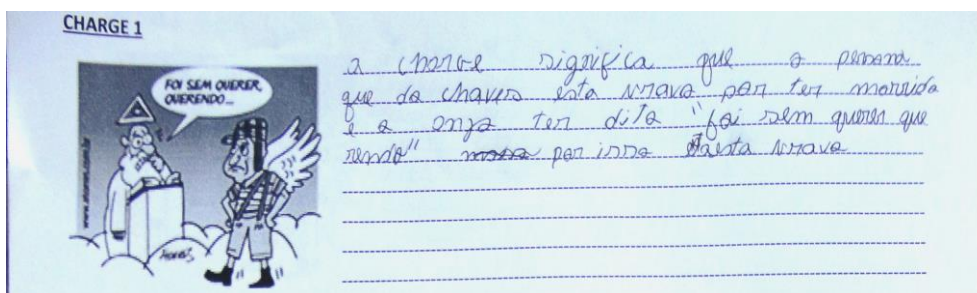 CHARGE 1
FOI SEM QUERER,
QUERENDO...
a charge significa que o
que do chaves esta brava por ter morrido
e o anjo ter dito "foi sem querer que
rendo" por isso esta brava